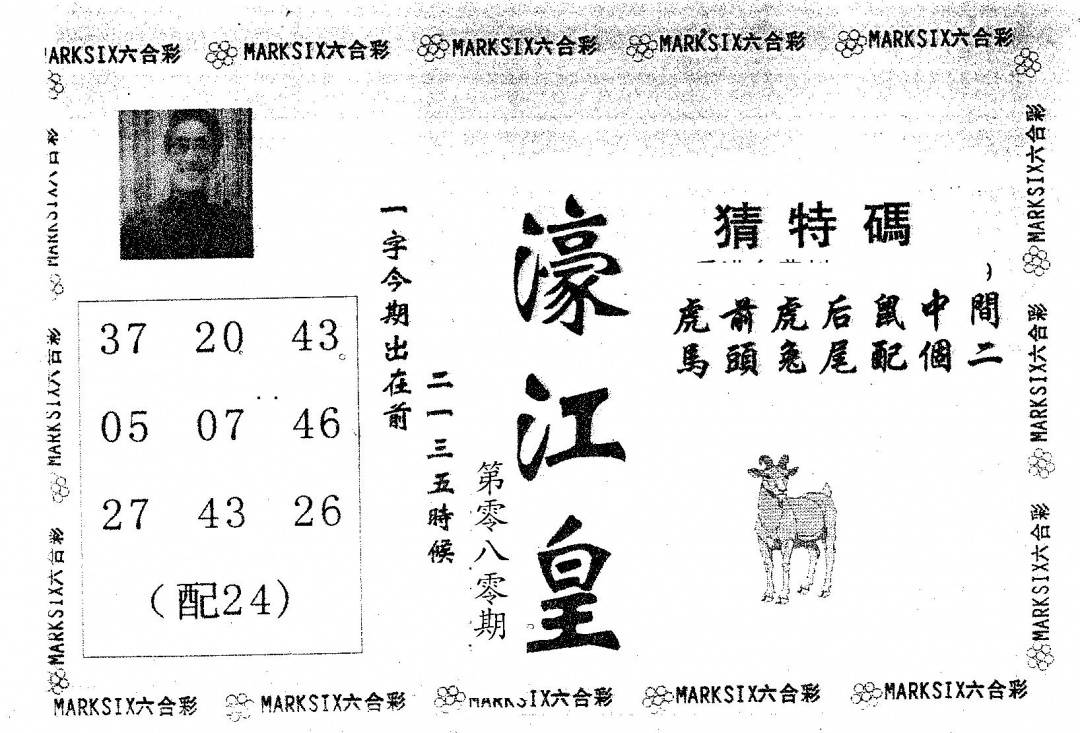 ARKSIX六合彩 MARKSIX六合彩 MARKSIX六合彩 MARKSIX六合彩 MARKSIX六合彩
猜特碼
虎前虎后鼠中間
馬頭兔尾配個二
濠江皇
第零八零期
一字今期出在前
二一三五時候
37 20 43
05 07 46
27 43 26
(配24)
MARKSIX六合彩
MARKSIX六合彩
MARKSIX六合彩
MARKSIX六合彩
MARKSIX六合彩
MARKSIX六合彩 MARKSIX六合彩 MARKSIX六合彩 MARKSIX六合彩 MARKSIX六合彩